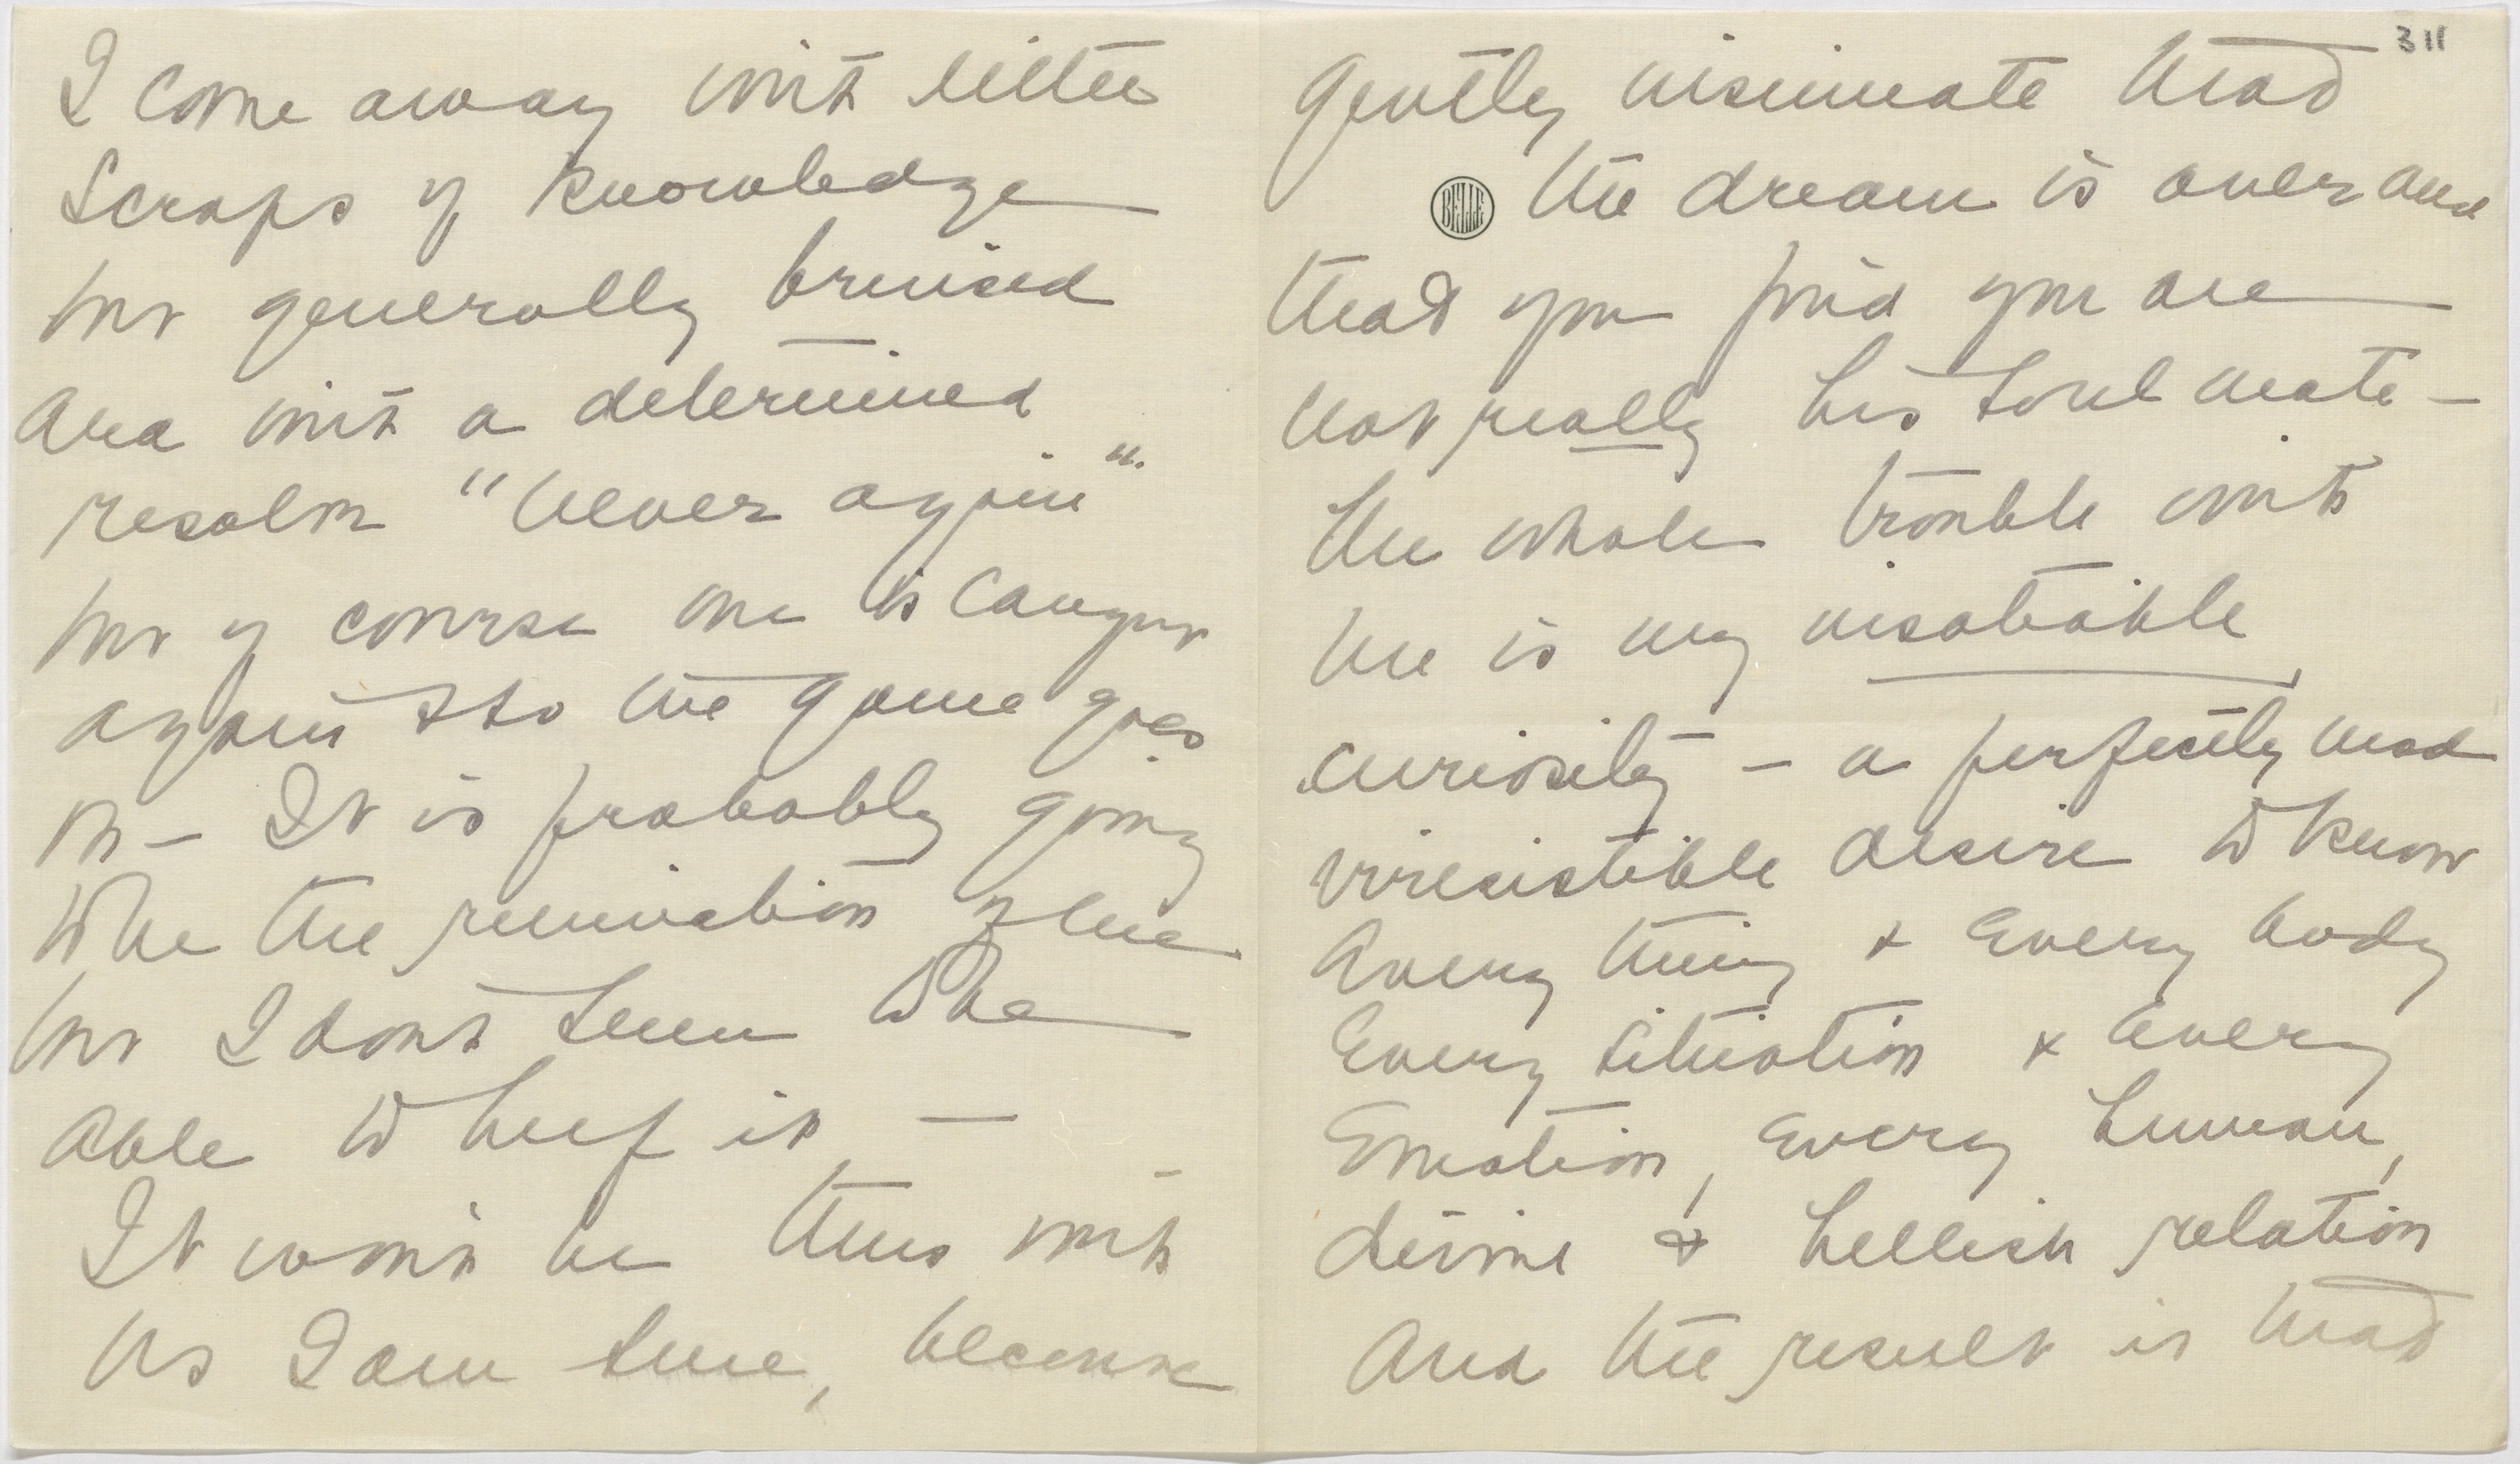 I come away with little
scraps of knowledge
but generally bruised
and with a determined
resolve "Never again".
but of course one is caught
again & so the game goes
on — It is probably going
to be the ruination of me
but I don't seem to be
able to help it —
It won't be thus with
us I am sure, because
311
gently insinuate that
BELLE
the dream is over and
that you find you are
not really his soul mate —
The whole trouble with
me is my insatiable
curiosity — a perfectly mad
irresistible desire to know
every thing & every body
every situation & every
emotion, every human,
divine & hellish relation
and the result is that